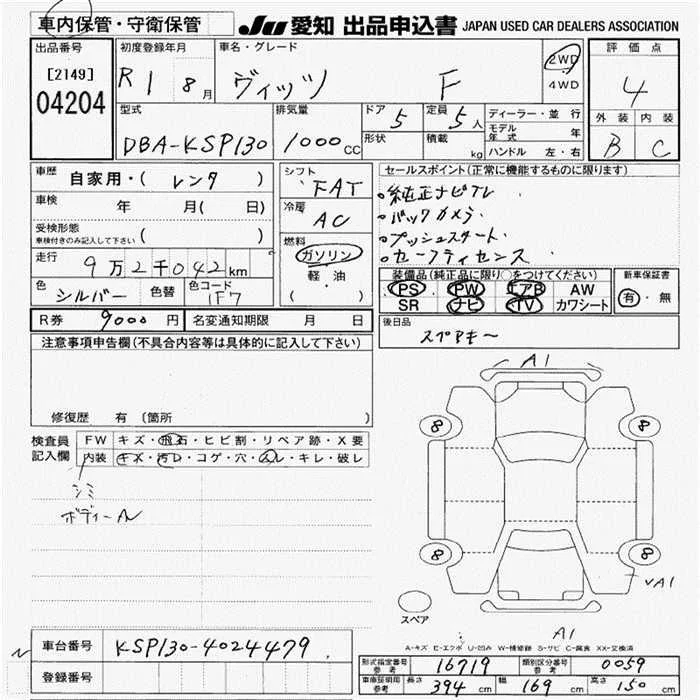 車内保管・守衛保管
JU 愛知 出品申込書 JAPAN USED CAR DEALERS ASSOCIATION
出品番号
[2149]
04204
初度登録年月
R1 8月
車名・グレード
ヴィッツ F
2WD
4WD
評価点
4
外装 内装
B C
型式
DBA-KSP130
排気量
1000cc
ドア 5
形状
定員 5人
積載 kg
ディーラー・並行
モデル年式 年
ハンドル 左・右
車歴 自家用・( レンタ )
車検 年 月( 日)
受検形態
車検付きのみ記入して下さい ( )
走行 9万2千042km
色 シルバー 色替 色コード 1F7
シフト FAT
冷房 AC
燃料
ガソリン
軽・油
( )
セールスポイント(正常に機能するものに限ります)
・純正ナビTV
・バックカメラ
・プッシュスタート
・セーフティセンス
装備品(純正品に限り○をつけてください)
PS PW エアB AW
SR ナビ TV カワシート
新車保証書
有・無
R券 9000円 名変通知期限 月 日
後日品
スペアキー
注意事項申告欄(不具合内容等は具体的に記入して下さい)
修復歴 有 (箇所 )
検査員記入欄
FW キズ・飛石・ヒビ割・リペア跡・X要
内装 キズ・汚レ・コゲ・穴・ムレ・キレ・破レ
シミ
ボディール
A1
8 8
8 8
スペア
A1
A1
A-キズ E-エクボ U-凹み W-補修跡 S-サビ C-腐食 XX-交換済
車台番号 KSP130-4024479
登録番号
形式指定番号 参考 16719 類別区分番号 参考 0059
車庫証明用 参考 長さ 394cm 幅 169cm 高さ 150cm